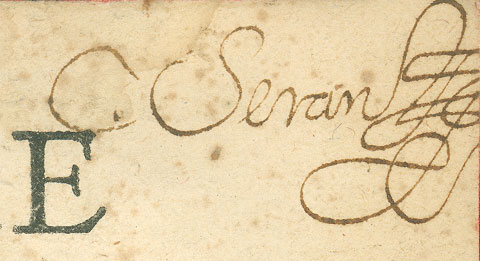 C. Seran
E